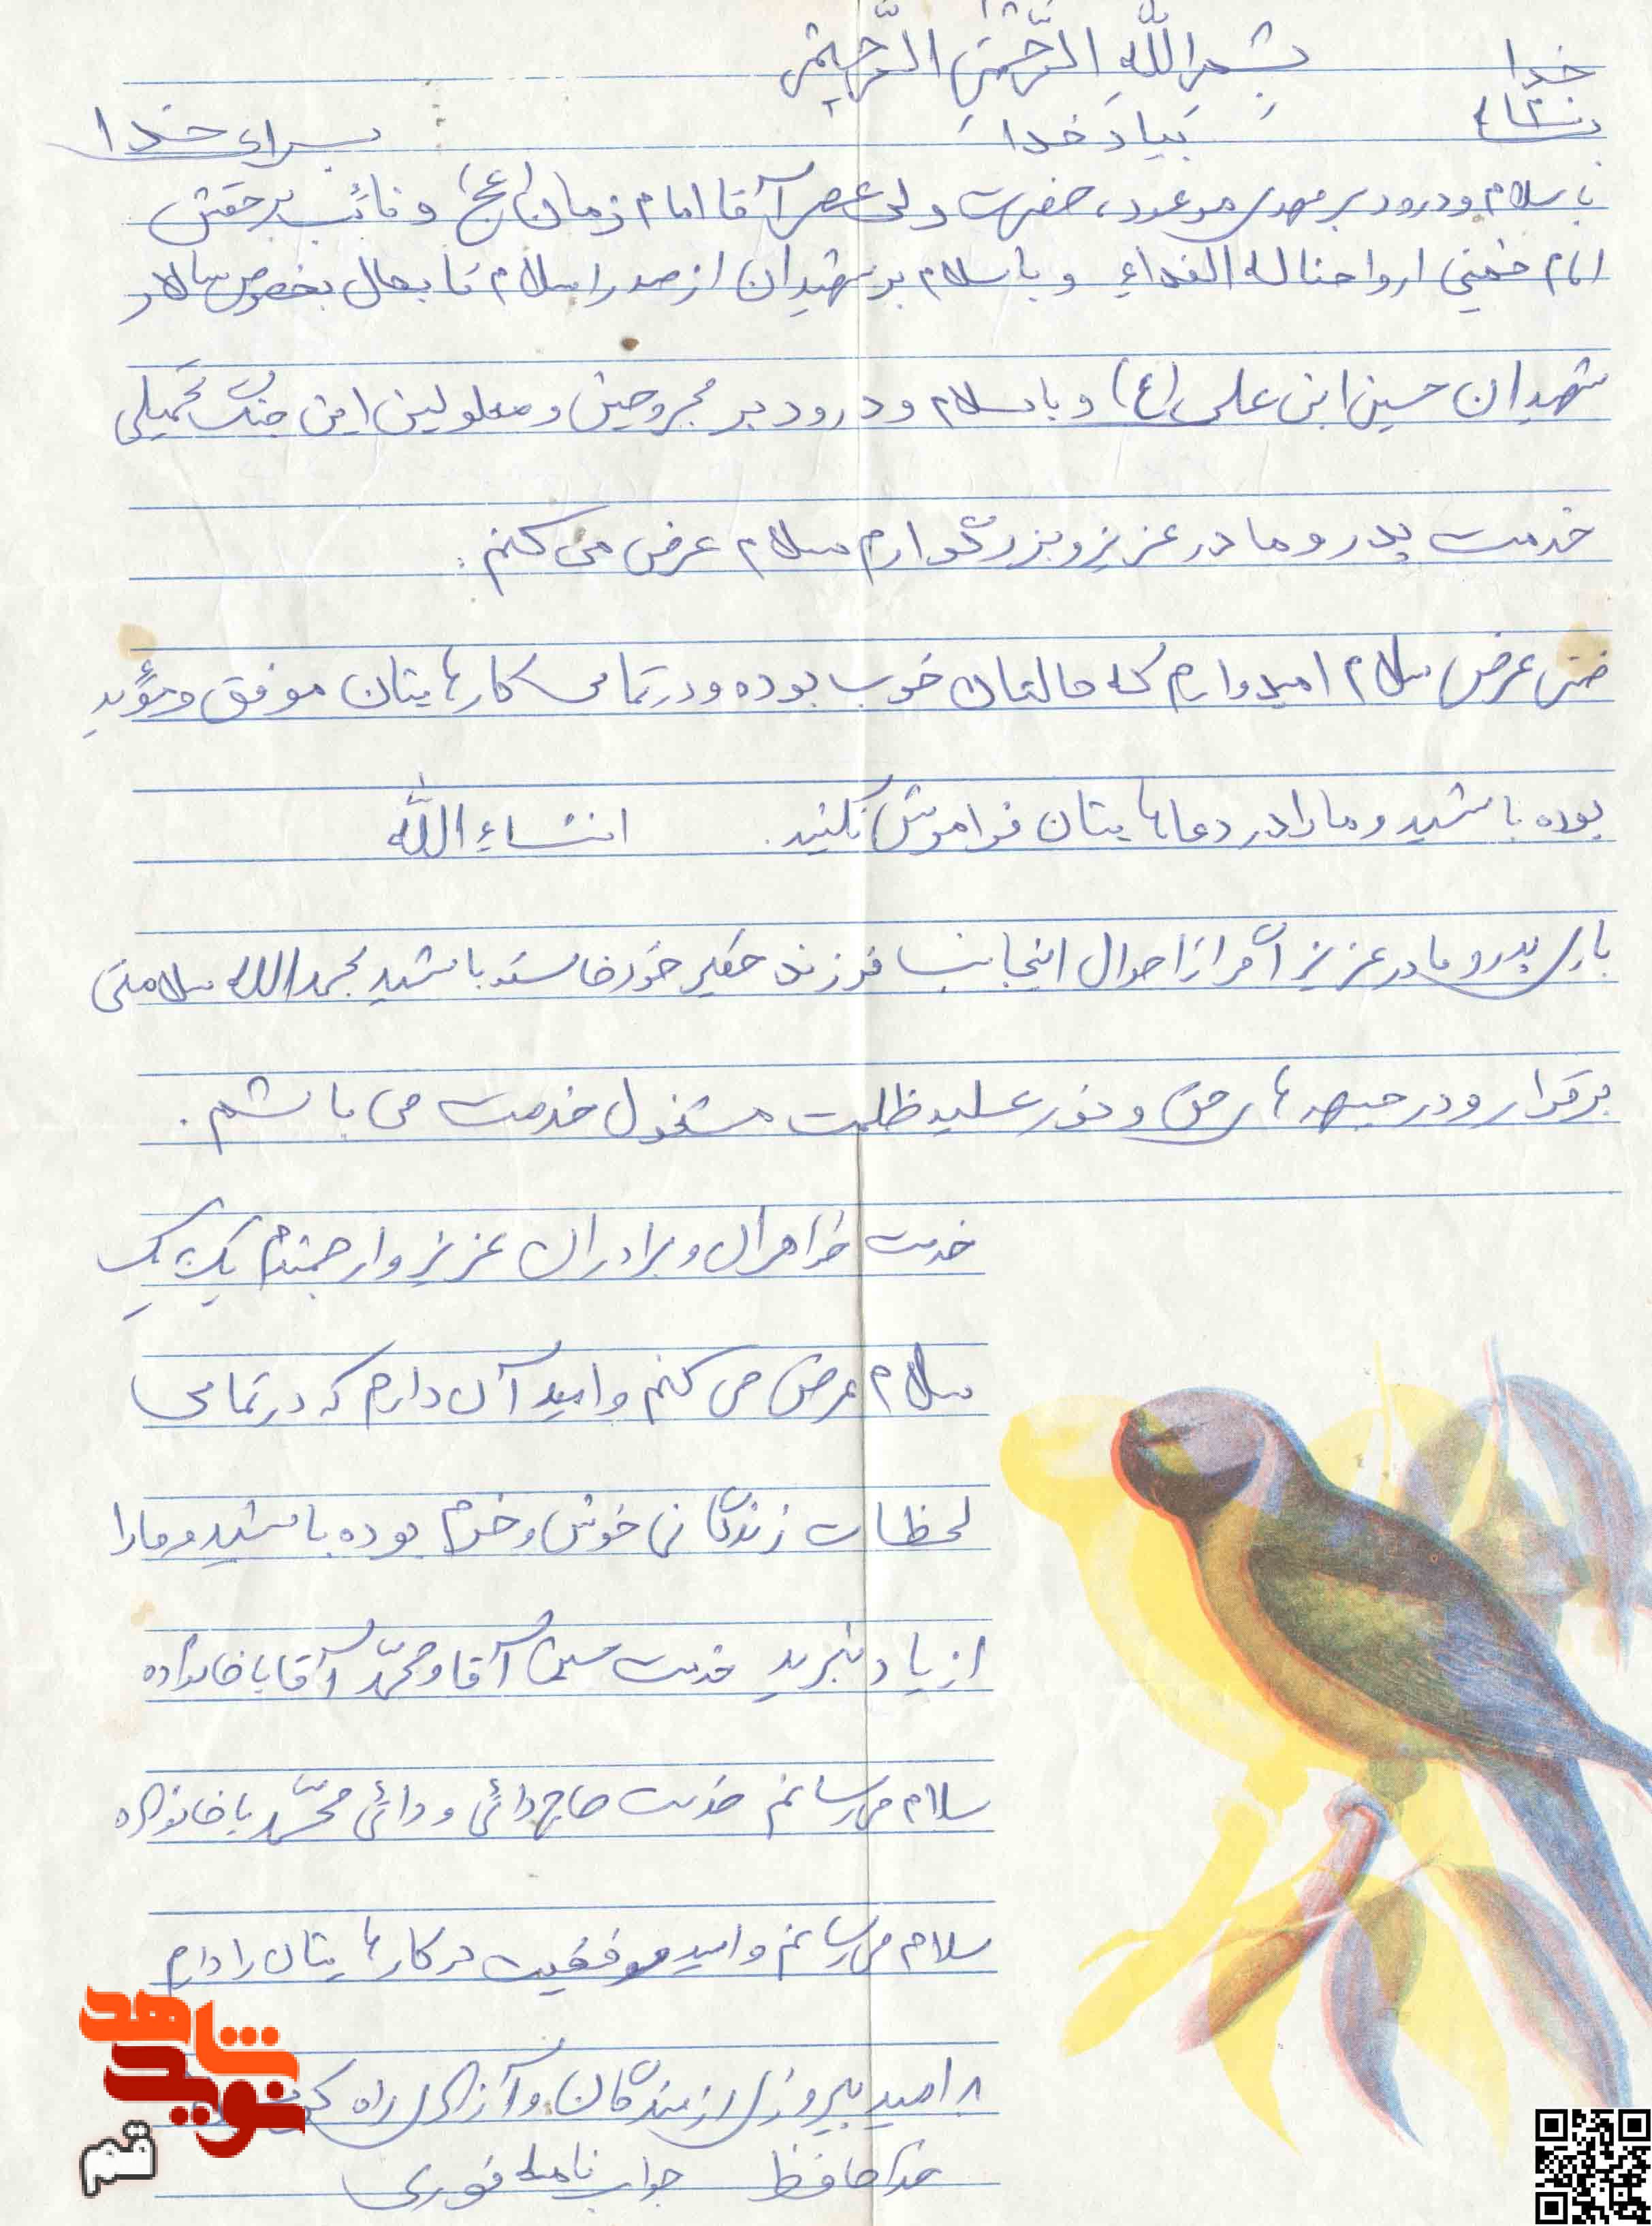 بسم اللهِ الرَّحمنِ الرَّحیمِ
خدا
بیاد خدا
برای خدا
با سلام و درود بر مهدی موعود، حضرت ولی عصر آقا امام زمان (عج) و نائب بر حقش
امام خمینی ارواحنا له الفداء و با سلام بر شهیدان از صدر اسلام تا بحال بخصوص سالار
شهیدان حسین ابن علی (ع) و با سلام و درود بر مجروحین و معلولین این جنگ تحمیلی
خدمت پدر و مادر عزیز و بزرگوارم سلام عرض می کنم.
ضمن عرض سلام امیدوارم که حالتان خوب بوده و در تمامی کارهایتان موفق و مؤید
بوده باشید و ما را در دعاهایتان فراموش نکنید. انشاء الله
باری پدر و مادر عزیز اگر از احوال اینجانب فرزند حقیر خود خواسته باشید بحمدالله سلامتی
برقرار و در جبهه های حق و نور علیه ظلمت مشغول خدمت می باشم.
خدمت خواهران و برادران عزیز و ارجمندم یک یک
سلام عرض می کنم و امید آن دارم که در تمامی
لحظات زندگانی خوش و خرم بوده باشید و ما را
از یاد نبرید خدمت آقا و محمّد آقا با خانواده
سلام می رسانم خدمت حاج دائی و دائی محمّد با خانواده
سلام می رسانم و امید موفقیت در کارهایتان را دارم
به امید پیروزی رزمندگان و آزادی راه
خداحافظ جواب نامه فوری
شاهد
نوید
قم